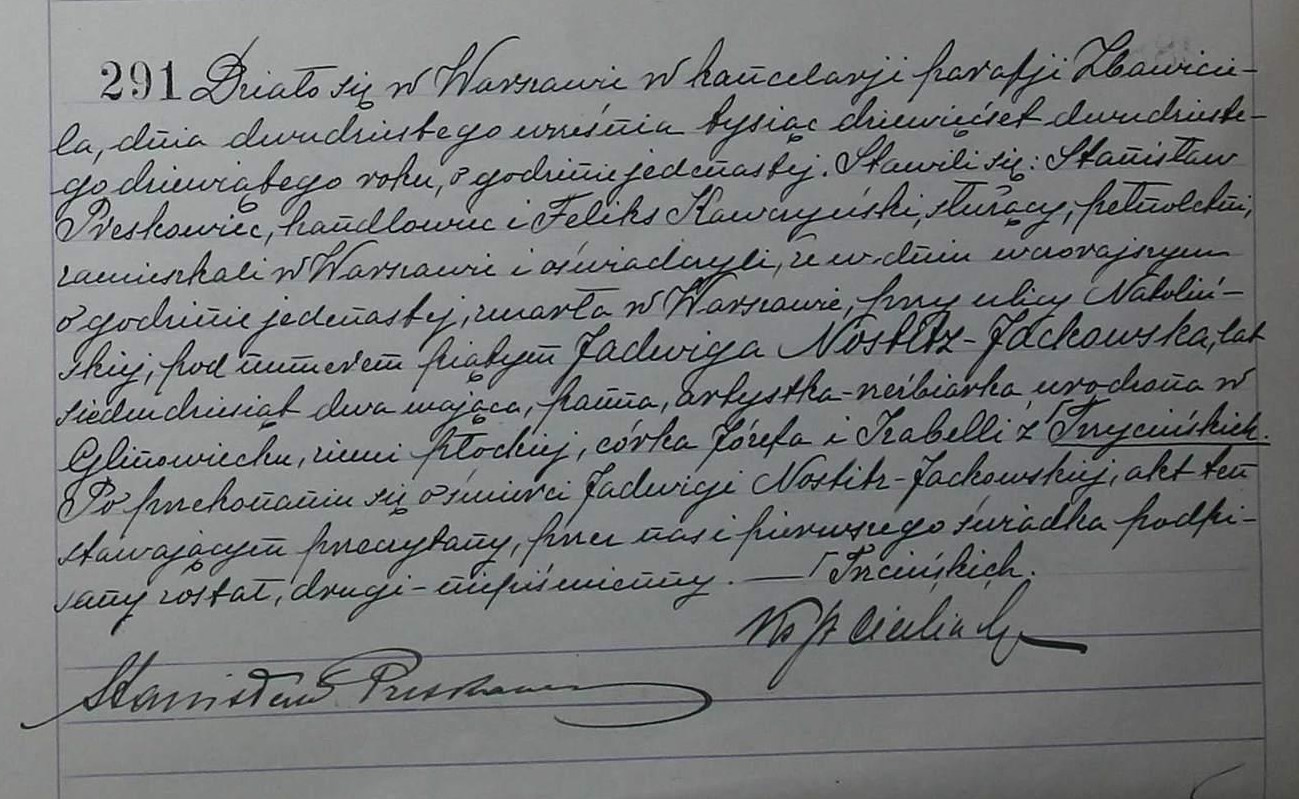 291 Działo się w Warszawie w kancelarji parafji Zbawicie-
la, dnia dwudziestego września tysiąc dziewięćset dwudzieste-
go dziewiątego roku, o godzinie jedenastej. Stawili się: Stanisław
Preskowiec, handlowiec i Feliks Kawczyński, służący, pełnoletni,
zamieszkali w Warszawie i oświadczyli, że w dniu wczorajszym
o godzinie jedenastej, zmarła w Warszawie, przy ulicy Natoliń-
skiej, pod numerem piątym Jadwiga Nostitz-Jackowska, lat
siedmdziesiąt dwa mająca, panna, artystka-rzeźbiarka, urodzona w
Glinowiecku, ziemi płockiej, córka Józefa i Izabelli z Trzycińskich.
Po przekonaniu się o śmierci Jadwigi Nostitz-Jackowskiej, akt ten
stawającym przeczytany, przez nas i pierwszego świadka podpi-
sany został, drugi-niepiśmienny. — Trzcińskich.
Stanisław